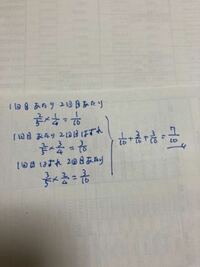 1回目あたり 2回目あたり
2/5 × 1/4 = 1/10
1回目あたり 2回目はずれ
2/5 × 3/4 = 3/10
1回目はずれ 2回目あたり
3/5 × 2/4 = 3/10
1/10 + 3/10 + 3/10 = 7/10